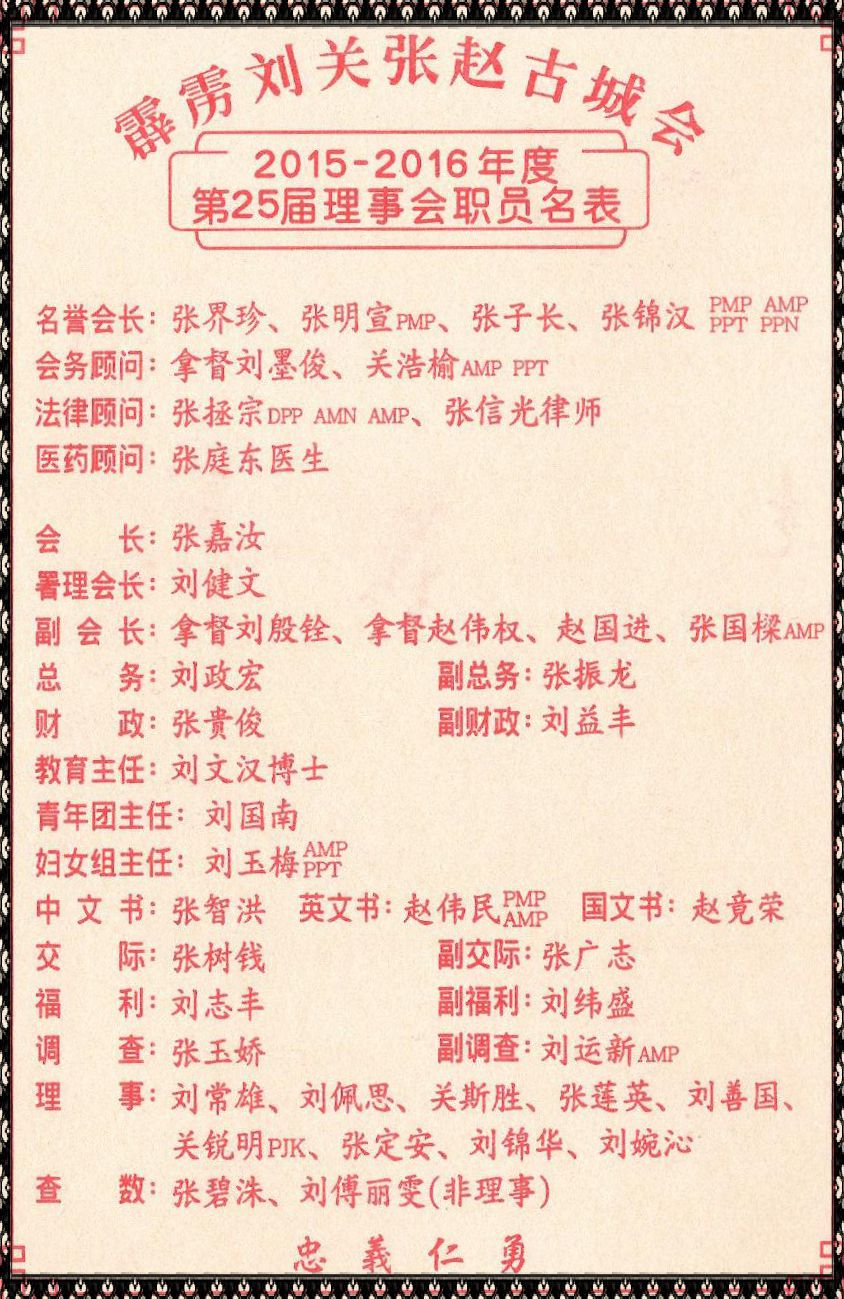 霹雳刘关张赵古城会
2015-2016年度
第25届理事会职员名表
名誉会长：张界珍、张明宣PMP、张子长、张锦汉 PMP AMP PPT PPN
会务顾问：拿督刘墨俊、关浩榆AMP PPT
法律顾问：张拯宗DPP AMN AMP、张信光律师
医药顾问：张庭东医生
会 长：张嘉汝
署理会长：刘健文
副 会 长：拿督刘殷铨、拿督赵伟权、赵国进、张国樑AMP
总 务：刘政宏 副总务：张振龙
财 政：张贵俊 副财政：刘益丰
教育主任：刘文汉博士
青年团主任：刘国南
妇女组主任：刘玉梅AMP PPT
中 文 书：张智洪 英文书：赵伟民PMP AMP 国文书：赵竟荣
交 际：张树钱 副交际：张广志
福 利：刘志丰 副福利：刘纬盛
调 查：张玉娇 副调查：刘运新AMP
理 事：刘常雄、刘佩思、关斯胜、张莲英、刘善国、
关锐明PJK、张定安、刘锦华、刘婉沁
查 数：张碧洙、刘傅丽雯(非理事)
忠 義 仁 勇